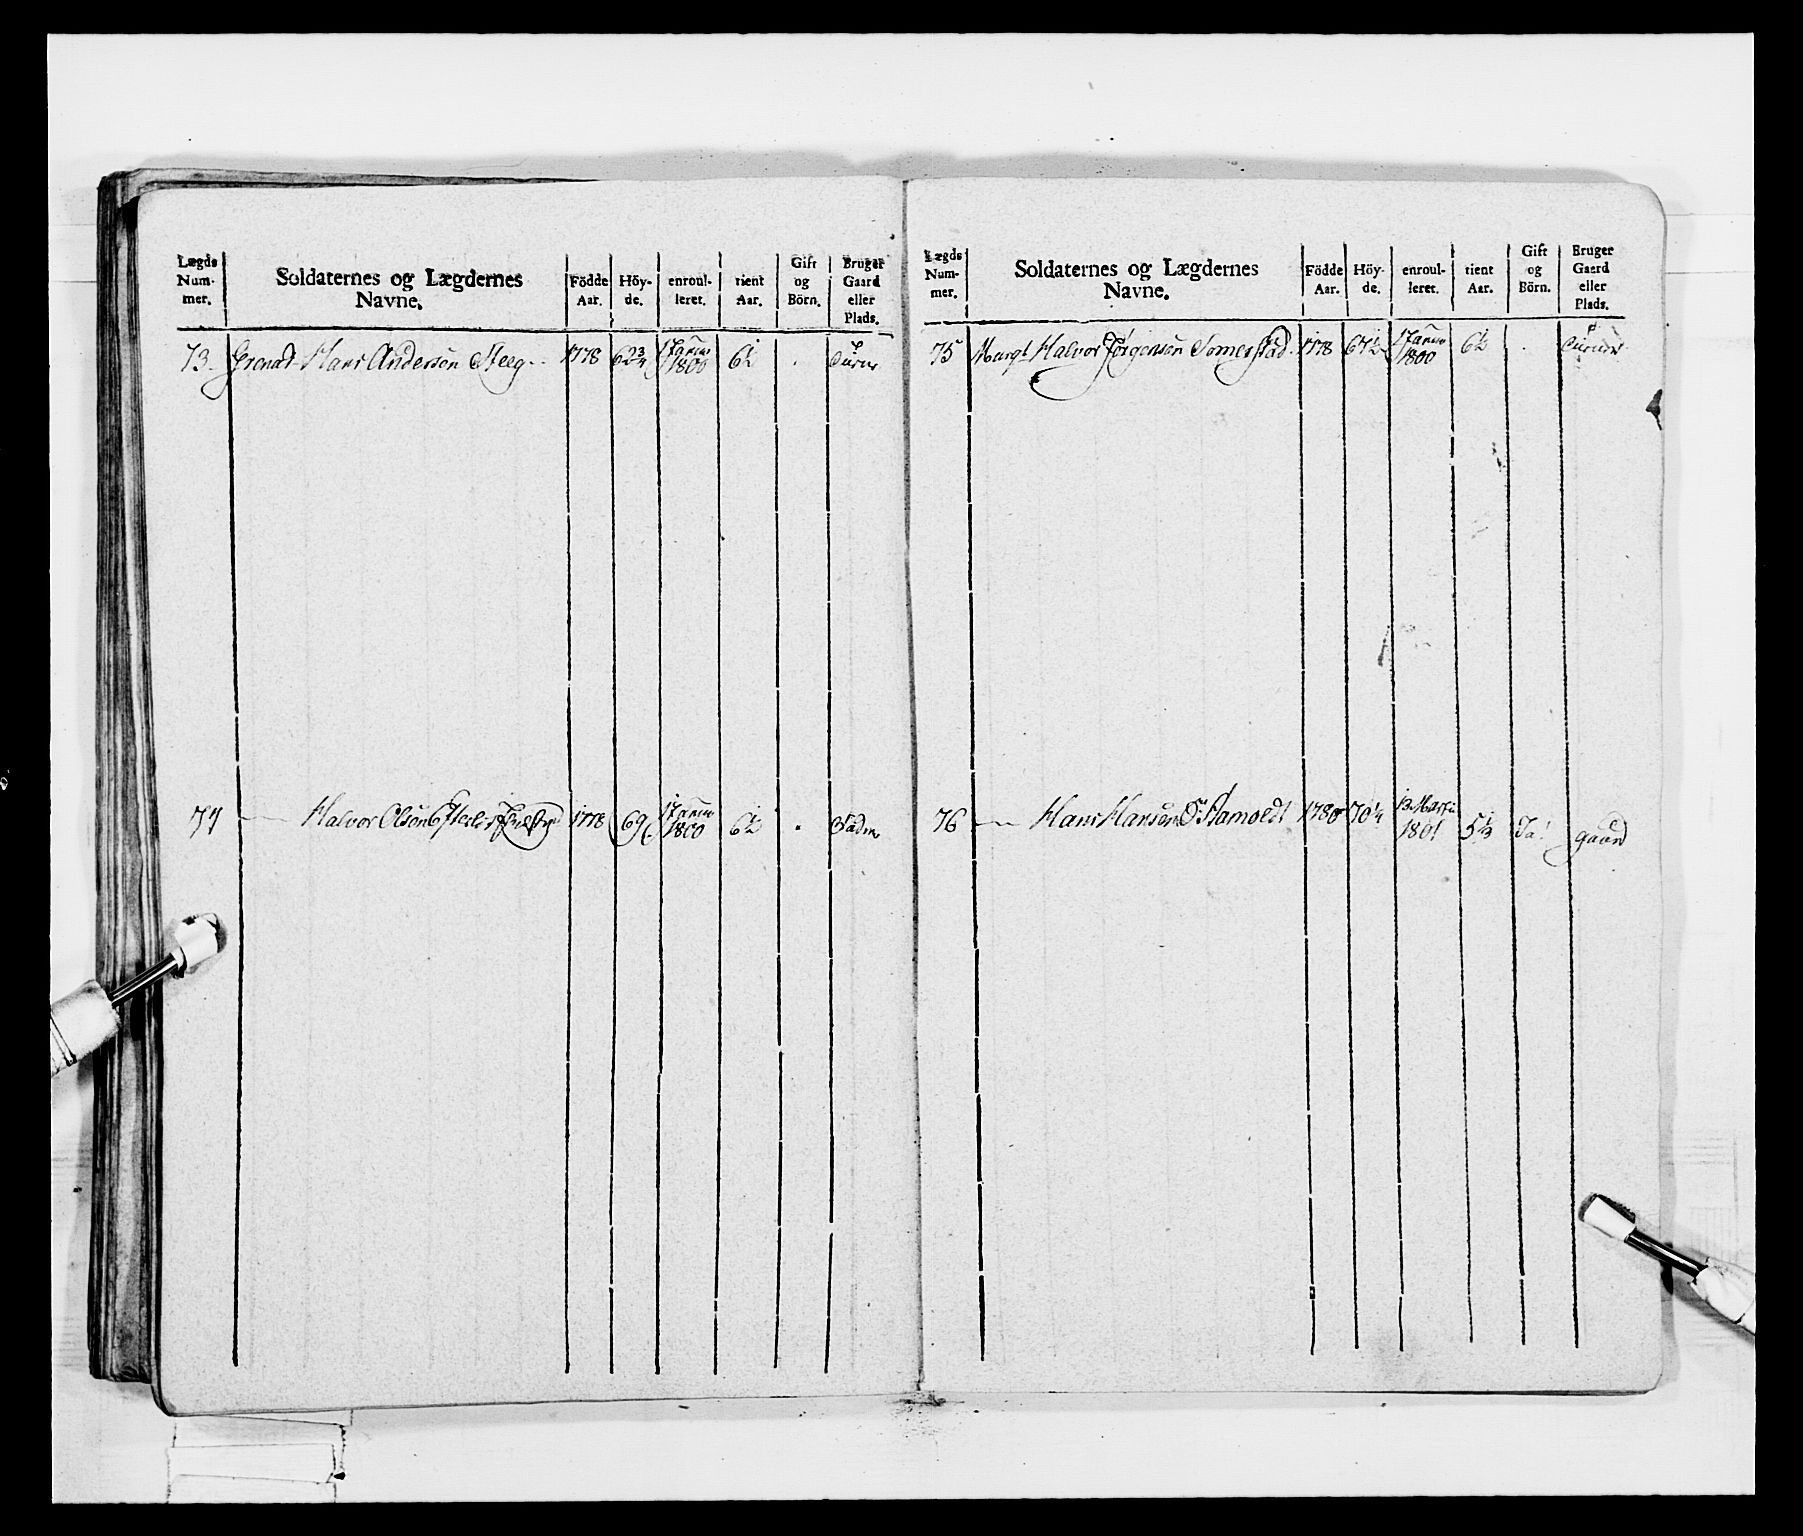 Lægds Num- mer. Soldaternes og Lægdernes Navne. Födde Aar. Höy- de. enroul- leret. tient Aar. Gift og Börn. Bruger Gaard eller Plads.
73. Grenad. Hans Anderson Steeg 1778 62 3/4 1 Janu 1800 6 1/2 .
74 Halvor Olson 1778 69 1 Janu 1800 6 1/2 .
Lægds Num- mer. Soldaternes og Lægdernes Navne. Födde Aar. Höy- de. enroul- leret. tient Aar. Gift og Börn. Bruger Gaard eller Plads.
75 Musqt Halvor Jörgensön Somerstad 1778 67 1/2 1 Janu 1800 6 1/2 .
76 Hans Hansön 1780 70 1/4 13 Marti 1801 5 1/3 Ja! gaard